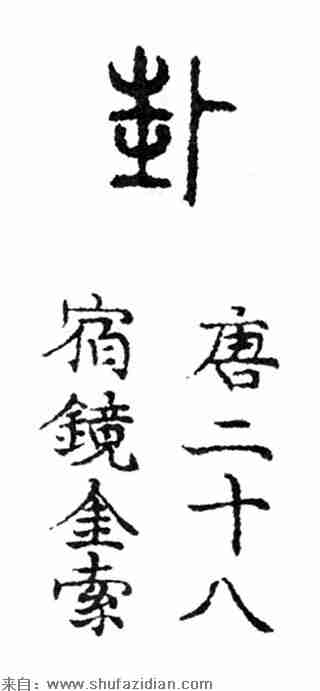 卦
唐二十八
宿鏡金索
来自：www.shufazidian.com